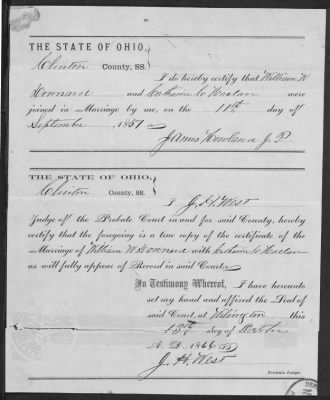 THE STATE OF OHIO,
Clinton County, SS.
I do hereby certify that William W
and C Harlan were
joined in Marriage by me, on the 11th day of
September, 1851
James J. P.
THE STATE OF OHIO,
Clinton County, SS.
I J. H. West
Judge of the Probate Court in and for said County, hereby
certify that the foregoing is a true copy of the certificate of the
Marriage of William W with C Harlan
as will fully appear of Record in said Court.
In Testimony Whereof, I have hereunto
set my hand and affixed the Seal of
said Court, at Wilmington this
day of
A. D. 1866
J. H. West
Probate Judge.